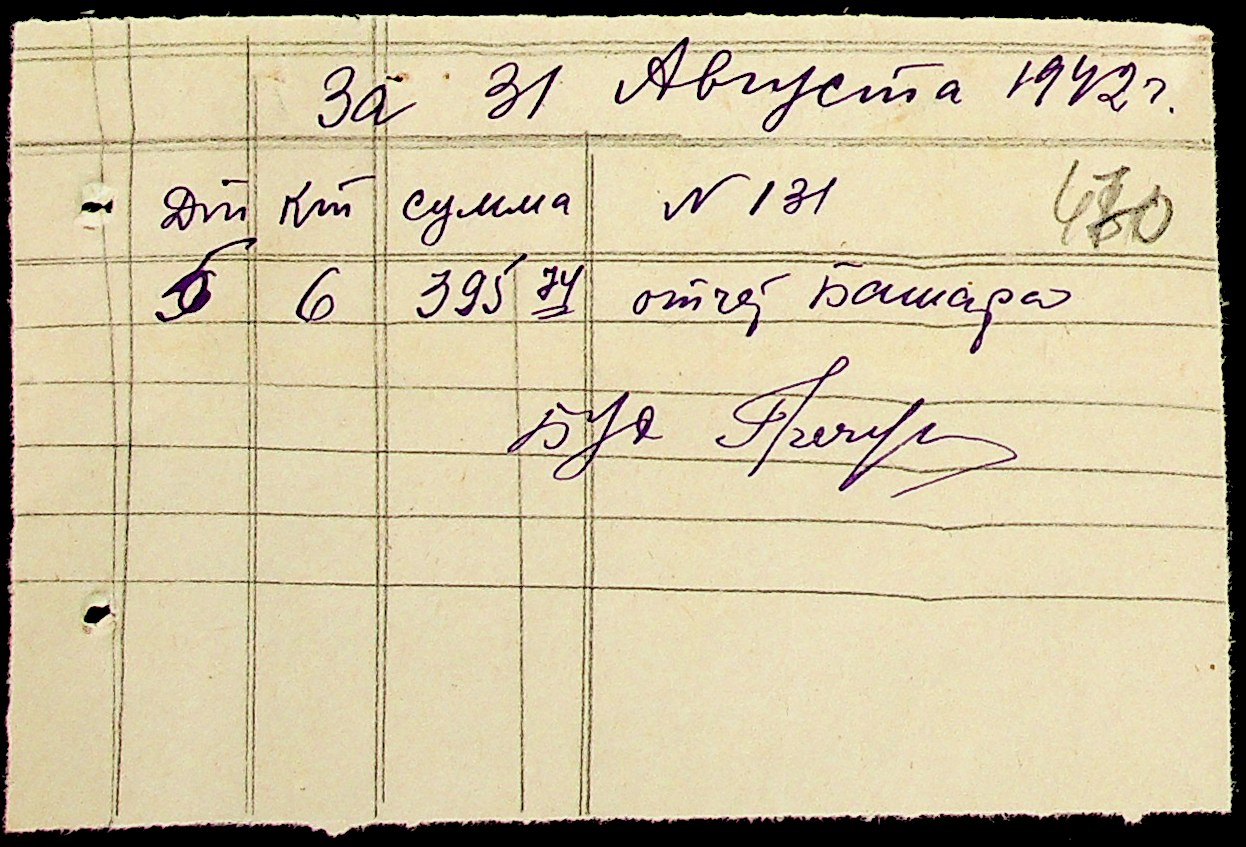 За 31 Августа 1942 г.
Дт Кт сумма N 131
5 6 395 74 отчет Башара
Бух